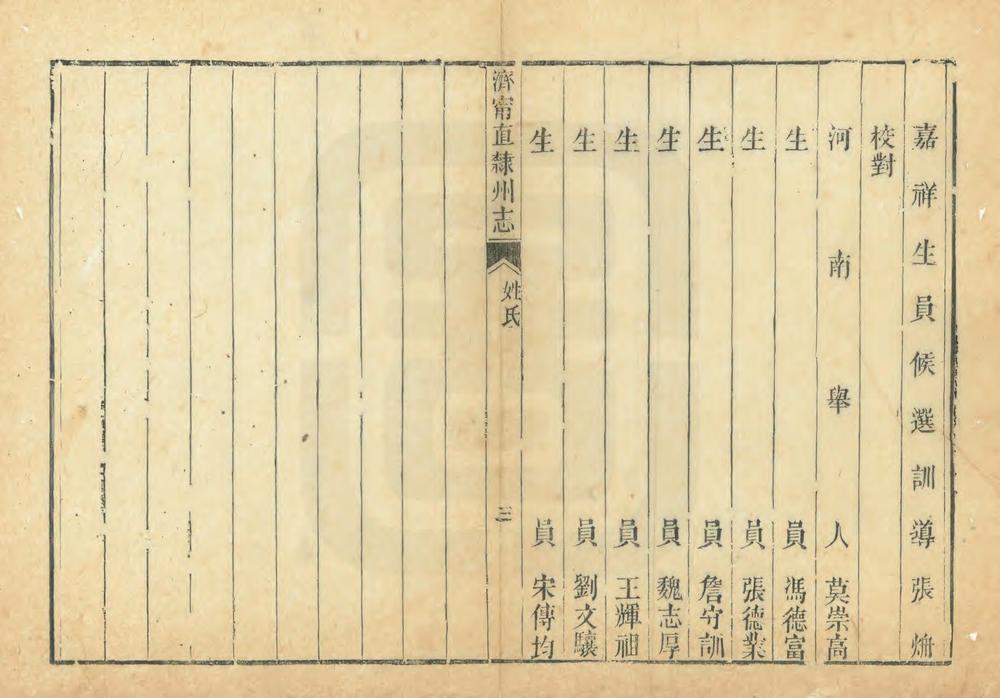 嘉祥生員候選訓導張
校對
河南舉人莫崇高
生員馮德富
生員張德業
生員詹守訓
生員魏志厚
生員王輝祖
生員劉文驤
生員宋傳均
濟甯直隸州志
姓氏
三